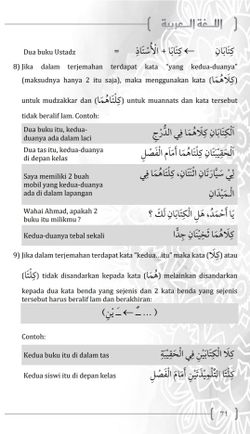 اللغة العربية
Dua buku Ustadz = كِتَابَا + الْأُسْتَاذِ ← كِتَابَانِ
8) Jika dalam terjemahan terdapat kata "yang kedua-duanya"
(maksudnya hanya 2 itu saja), maka menggunakan kata (كِلَاهُمَا)
untuk mudzakkar dan (كِلْتَاهُمَا) untuk muannats dan kata tersebut
tidak beralif lam. Contoh:
Dua buku itu, kedua-
duanya ada dalam laci
اَلْكِتَابَانِ كِلَاهُمَا فِي الدُّرْجِ
Dua tas itu, kedua-duanya
di depan kelas
اَلْحَقِيْبَتَانِ كِلْتَاهُمَا أَمَامَ الْفَصْلِ
Saya memiliki 2 buah
mobil yang kedua-duanya
ada di dalam lapangan
لِيْ سَيَّارَتَانِ اثْنَتَانِ، كِلْتَاهُمَا فِي
الْمَيْدَانِ
Wahai Ahmad, apakah 2
buku itu milikmu ?
يَا أَحْمَدُ، هَلِ الْكِتَابَانِ لَكَ ؟
Kedua-duanya tebal sekali
كِلَاهُمَا ثَخِيْنَانِ جِدًّا
9) Jika dalam terjemahan terdapat kata "kedua...itu" maka kata (كِلَا) atau
(كِلْتَا) tidak disandarkan kepada kata (هُمَا) melainkan disandarkan
kepada dua kata benda yang sejenis dan 2 kata benda yang sejenis
tersebut harus beralif lam dan berakhiran:
Contoh:
Kedua buku itu di dalam tas
كِلَا الْكِتَابَيْنِ فِي الْحَقِيْبَةِ
Kedua siswi itu di depan kelas
كِلْتَا التِّلْمِيْذَتَيْنِ أَمَامَ الْفَصْلِ
71